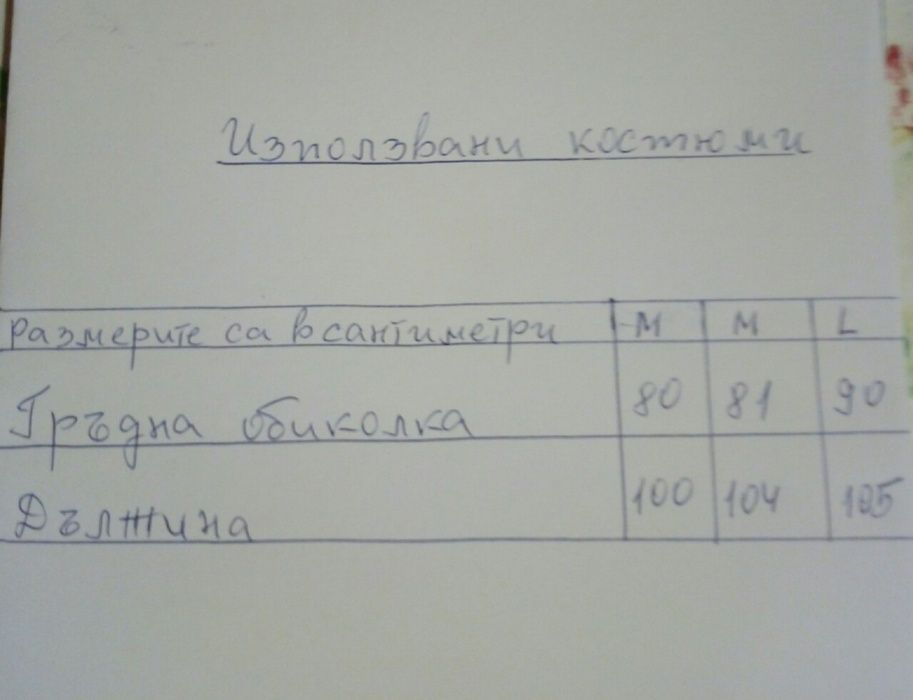 Използвани костюми
Размерите са в сантиметри M M L
Гръдна обиколка 80 81 90
Дължина 100 104 105